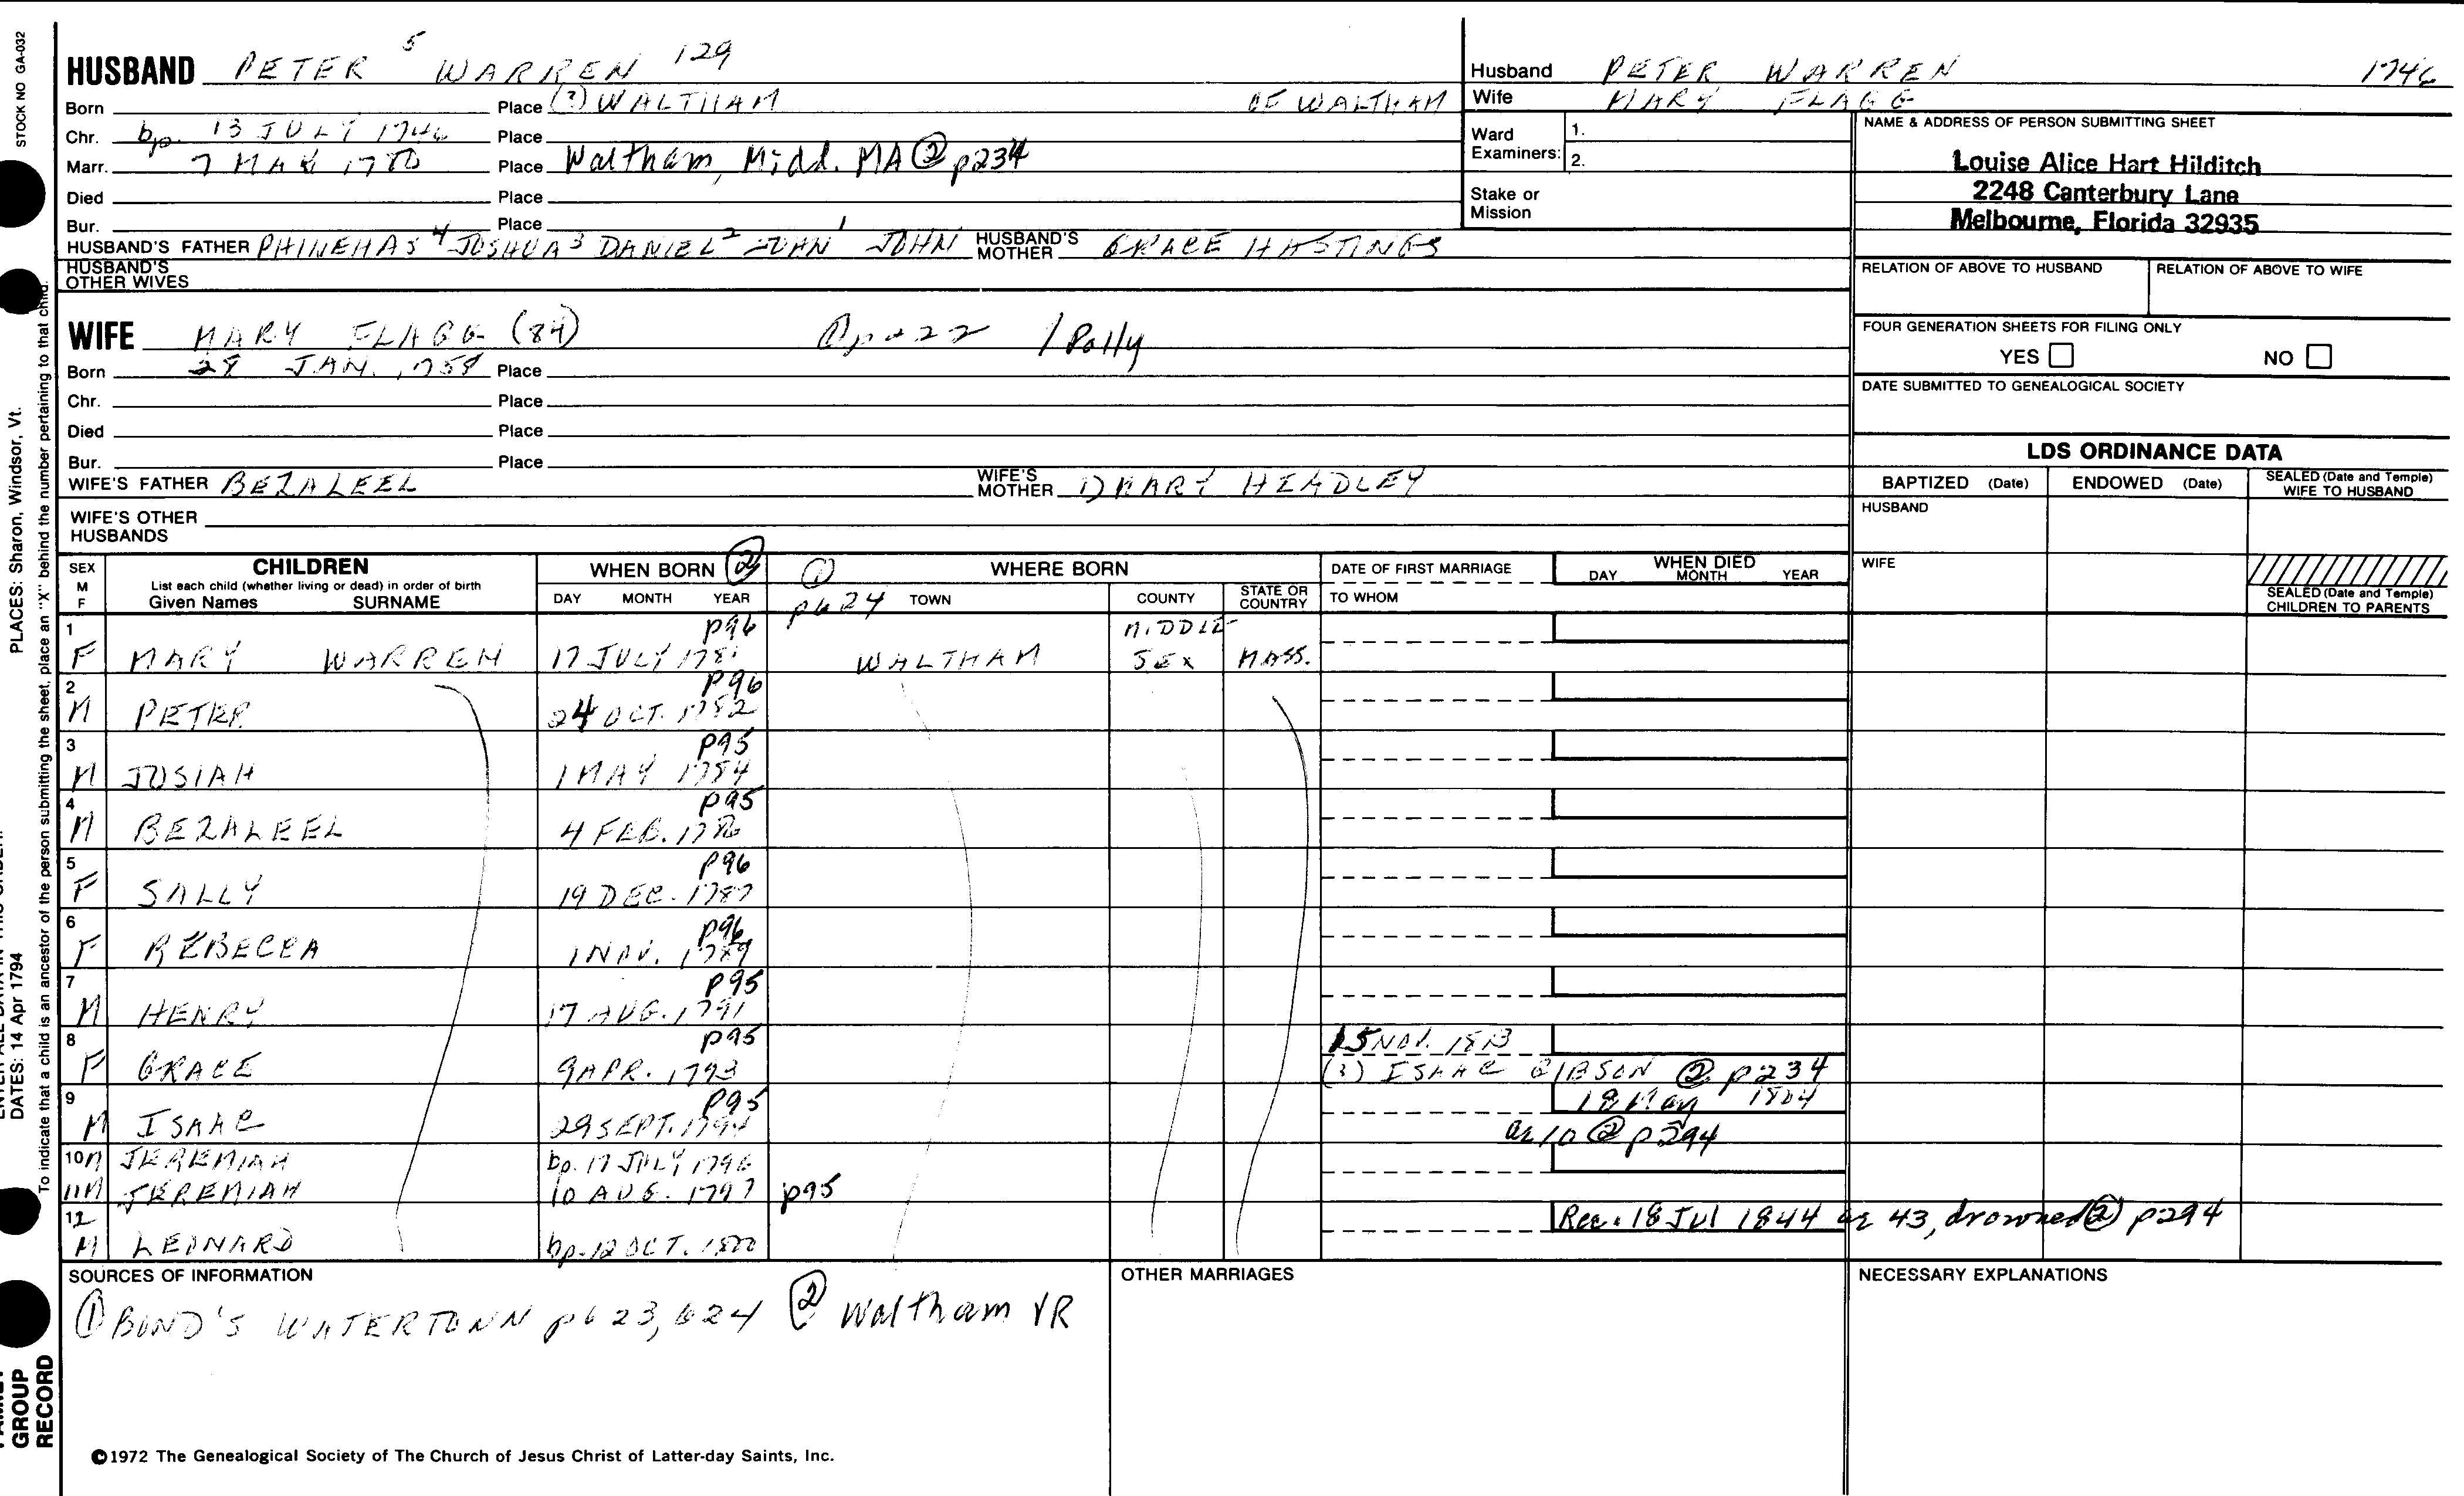 STOCK NO GA-032
HUSBAND PETER 5 WARREN 129
Born Place (?) WALTHAM OF WALTHAM
Chr. bp. 13 JULY 1746 Place
Marr. 7 MAY 1780 Place Waltham, Midd. MA ② p234
Died Place
Bur. Place
HUSBAND'S FATHER PHINEHAS 4 JOSHUA 3 DANIEL 2 JOHN 1 JOHN HUSBAND'S MOTHER GRACE HASTINGS
HUSBAND'S OTHER WIVES
Husband PETER WARREN 1746
Wife MARY FLAGG
Ward Examiners: 1.
2.
Stake or Mission
NAME & ADDRESS OF PERSON SUBMITTING SHEET
Louise Alice Hart Hilditch
2248 Canterbury Lane
Melbourne, Florida 32935
RELATION OF ABOVE TO HUSBAND RELATION OF ABOVE TO WIFE
FOUR GENERATION SHEETS FOR FILING ONLY
YES NO
DATE SUBMITTED TO GENEALOGICAL SOCIETY
WIFE MARY FLAGG (84) / Polly
Born 28 JAN. 1758 Place
Chr. Place
Died Place
Bur. Place
WIFE'S FATHER BEZALEEL WIFE'S MOTHER MARY HEADLEY
WIFE'S OTHER HUSBANDS
LDS ORDINANCE DATA
BAPTIZED (Date) ENDOWED (Date) SEALED (Date and Temple) WIFE TO HUSBAND
HUSBAND
WIFE
SEALED (Date and Temple) CHILDREN TO PARENTS
SEX M F
CHILDREN
List each child (whether living or dead) in order of birth
Given Names SURNAME
WHEN BORN ②
DAY MONTH YEAR
① p624 WHERE BORN
TOWN COUNTY STATE OR COUNTRY
DATE OF FIRST MARRIAGE
TO WHOM
WHEN DIED
DAY MONTH YEAR
1 F MARY WARREN 17 JULY 1781 p96 WALTHAM MIDDLE SEX MASS.
2 M PETER 24 OCT. 1782 p96
3 M JOSIAH 1 MAY 1784 p95
4 M BEZALEEL 4 FEB. 1786 p95
5 F SALLY 19 DEC. 1787 p96
6 F REBECCA 1 NOV. 1789 p96
7 M HENRY 17 AUG. 1791 p95
8 F GRACE 9 APR. 1793 p95 15 NOV. 1813
(3) ISAAC GIBSON ② p234
9 M ISAAC 29 SEPT. 1794 p95 18 May 1804
ae 10 ② p294
10 M JEREMIAH bp. 17 JULY 1796
11 M JEREMIAH 10 AUG. 1797 p95
12 M LEONARD bp. 12 OCT. 1800 Rec. 18 Jul 1844 ae 43, drowned ② p294
SOURCES OF INFORMATION
① BOND'S WATERTOWN p623, 624 ② Waltham VR
OTHER MARRIAGES
NECESSARY EXPLANATIONS
©1972 The Genealogical Society of The Church of Jesus Christ of Latter-day Saints, Inc.
PLACES: Sharon, Windsor, Vt.
DATES: 14 Apr 1794
To indicate that a child is an ancestor of the person submitting the sheet, place an "X" behind the number pertaining to that child.
GROUP
RECORD